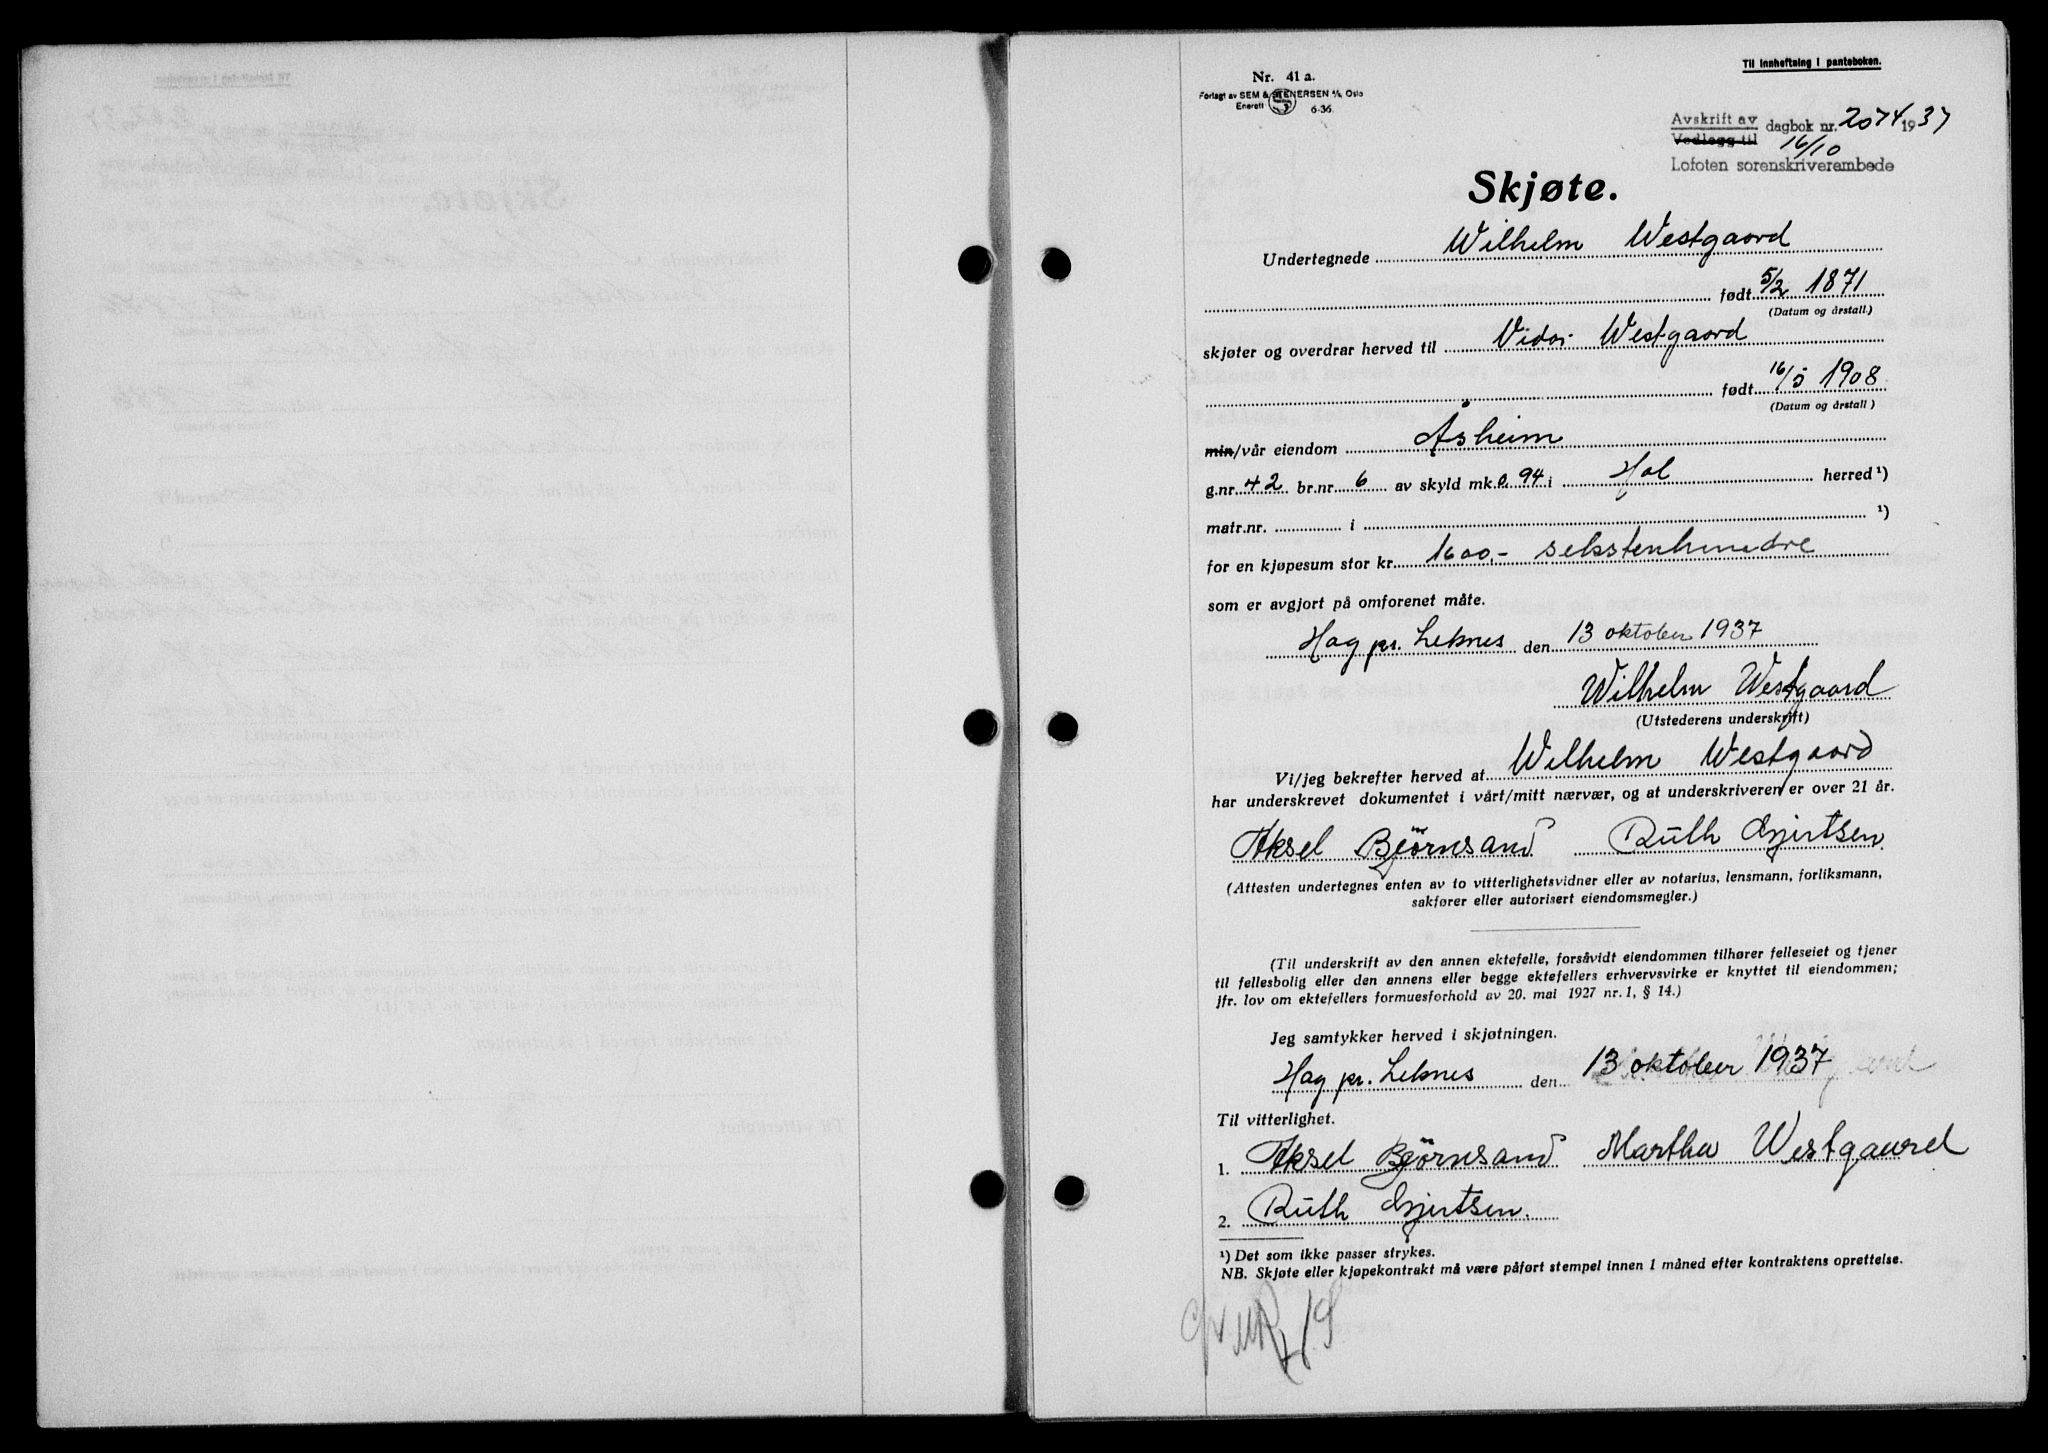 Til innheftning i panteboken.
Nr. 41 a.
Forlagt av SEM & STENERSEN A/S, Oslo
Enerett 6-36.
Avskrift av
Vedlegg til dagbok nr. 2074 1937
16/10
Lofoten sorenskriverembede
Skjøte.
Undertegnede Wilhelm Westgaard
født 5/2 1871
(Datum og årstall.)
skjøter og overdrar herved til Vidar Westgaard
født 16/5 1908
(Datum og årstall)
min/vår eiendom Åsheim
g.nr. 42 br.nr. 6 av skyld mk. 0.94 i Hol herred ¹)
matr.nr. i ¹)
for en kjøpesum stor kr. 1600,- sekstenhundre
som er avgjort på omforenet måte.
Hag pr. Leknes den 13 oktober 1937
Wilhelm Westgaard
(Utstederens underskrift)
Vi/jeg bekrefter herved at Wilhelm Westgaard
har underskrevet dokumentet i vårt/mitt nærvær, og at underskriveren er over 21 år.
Aksel Bjørnsand Ruth Gjertsen
(Attesten undertegnes enten av to vitterlighetsvidner eller av notarius, lensmann, forliksmann,
sakfører eller autorisert eiendomsmegler.)
(Til underskrift av den annen ektefelle, forsåvidt eiendommen tilhører felleseiet og tjener
til fellesbolig eller den annens eller begge ektefellers erhvervsvirke er knyttet til eiendommen;
jfr. lov om ektefellers formuesforhold av 20. mai 1927 nr. 1, § 14.)
Jeg samtykker herved i skjøtningen.
Hag pr. Leknes den 13 oktober 1937
Til vitterlighet.
1. Aksel Bjørnsand Martha Westgaard
2. Ruth Gjertsen.
¹) Det som ikke passer strykes.
NB. Skjøte eller kjøpekontrakt må være påført stempel innen 1 måned efter kontraktens oprettelse.